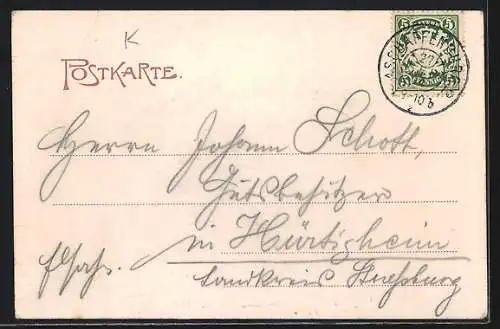 K
POSTKARTE.
5 5
5 5
ASCHAFFENBURG
Herrn Johann Schott,
Gutsbesitzer
in Hürtigheim
Elsass.
Landkreis Strassburg